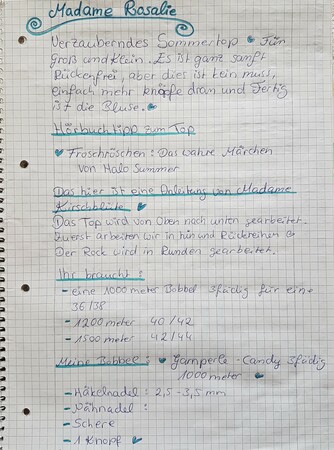 Madame Rosalie
Verzauberndes Sommertop Für
Groß und Klein. Es ist ganz sanft
Rückenfrei, aber dies ist kein must,
einfach mehr knöpfe dran und Fertig
ist die Bluse.
Hörbuchtipp zum Top
Froschröschen: Das wahre Märchen
von Halo Summer
Das hier ist eine Anleitung von Madame
Kirschblüte
Das Top wird von Oben nach unten gearbeitet.
Zuerst arbeiten wir in hin und Rückreihen
Der Rock wird in Runden gearbeitet.
Ihr braucht:
- eine 1000 meter Bobbel 3fädig für eine
36/38
- 1200 meter 40/42
- 1500 meter 42/44
Meine Bobbel: Gamperle - Candy 3fädig
1000 meter
- Häkelnadel: 2,5 - 3,5 mm
- Nähnadel:
- Schere
- 1 Knopf